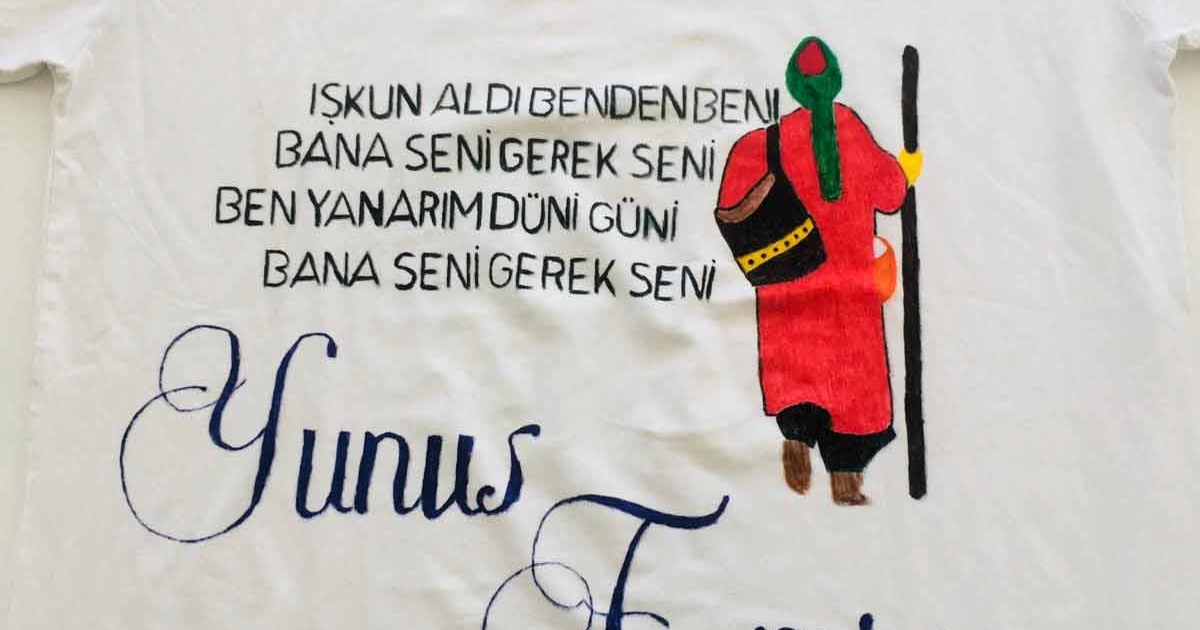 IŞKUN ALDI BENDEN BENI
BANA SENİ GEREK SENİ
BEN YANARIM DÜNİ GÜNİ
BANA SENİ GEREK SENİ
Yunus